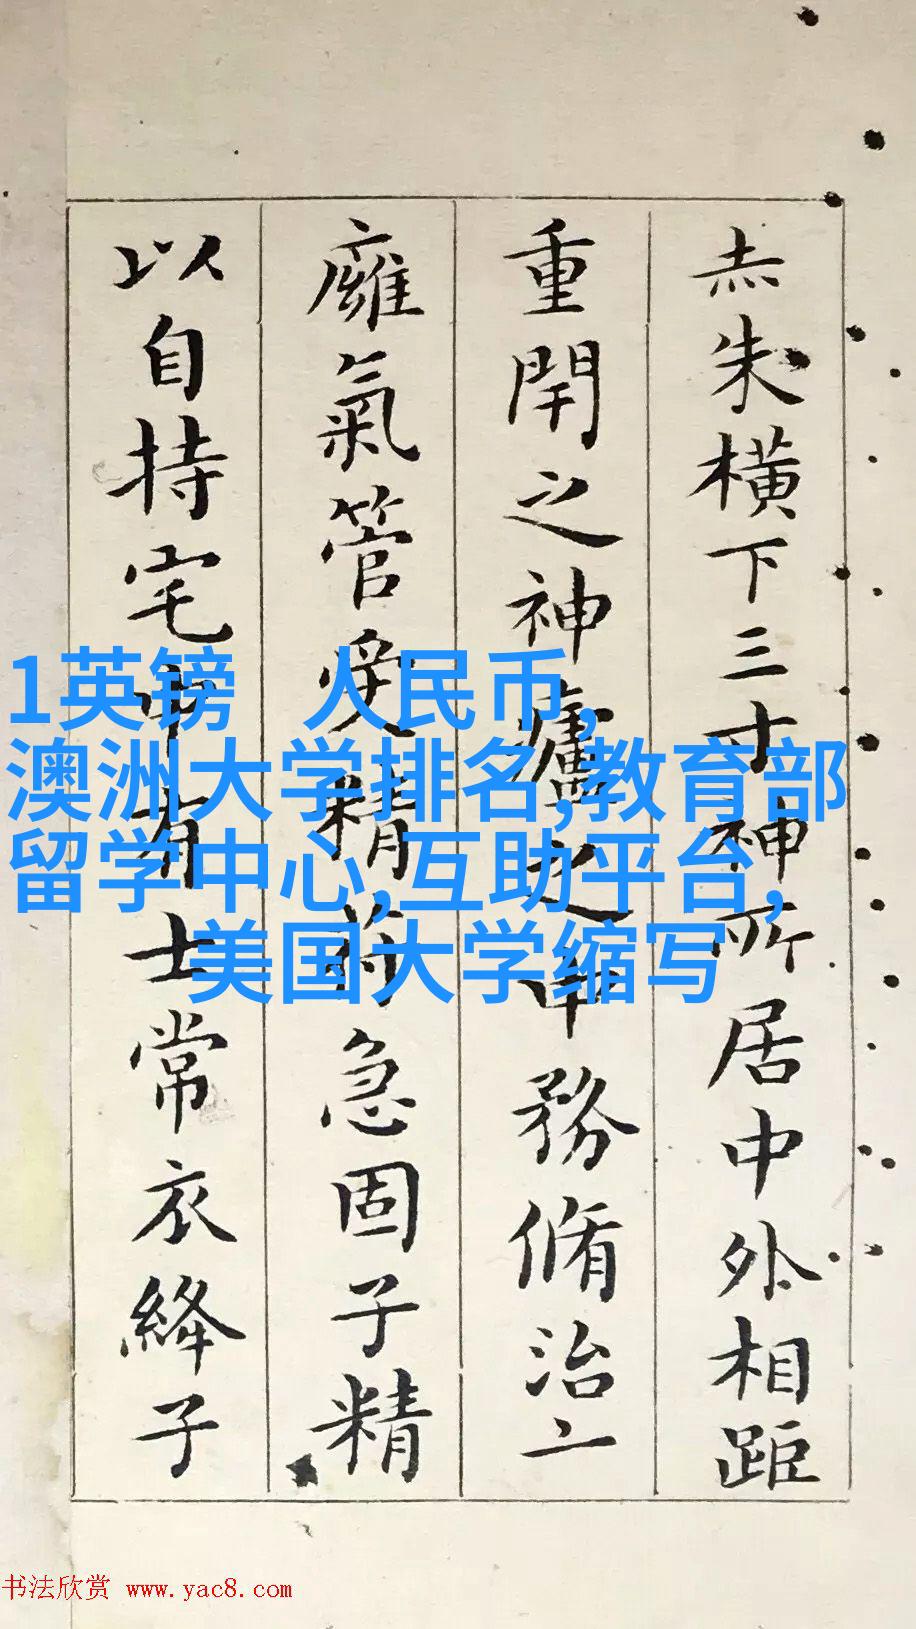 赤朱橫下三寸神所居中外相距
重閇之神廬之中務脩治
廱氣管受精符急固子精
以自持宅中有士常衣絳子
1英镑 人民币,
澳洲大学排名,教育部
留学中心,互助平台,
美国大学缩写
书法欣赏 www.yac8.com